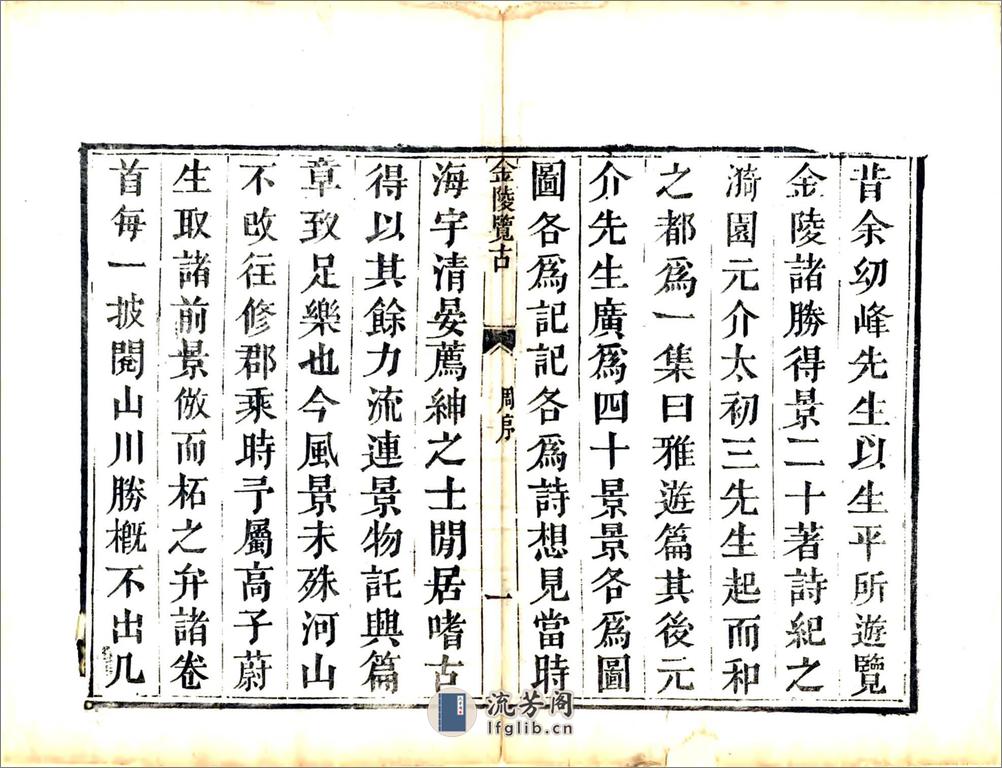 昔余幼峰先生以生平所遊覽
金陵諸勝得景二十著詩紀之
漪園元介太初三先生起而和
之都爲一集曰雅遊篇其後元
介先生廣爲四十景景各爲圖
圖各爲記記各爲詩想見當時
金陵覽古
周序
一
海宇清晏薦紳之士閒居嗜古
得以其餘力流連景物託興篇
章致足樂也今風景未殊河山
不改往修郡乘時予屬高子蔚
生取諸前景倣而柘之弁諸卷
首每一披閱山川勝概不出几
流芳阁
lfglib.cn